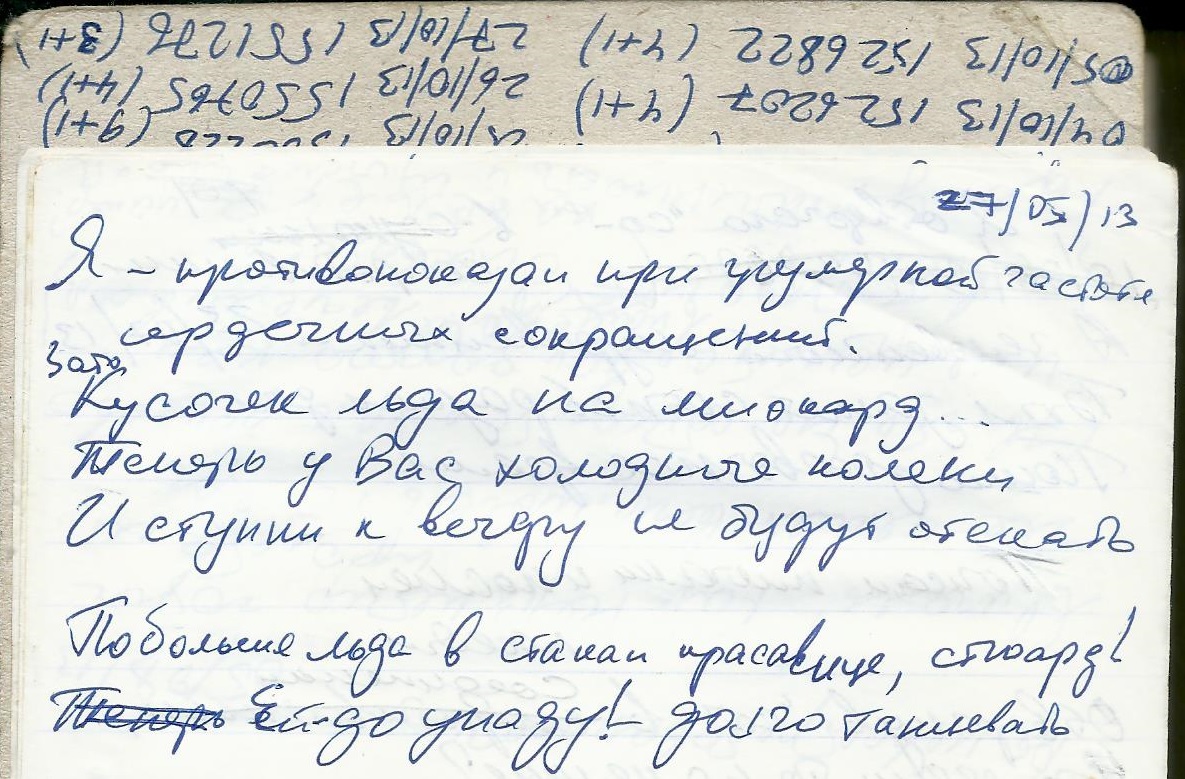 27/10/13 1551276 (3+1) 05/10/13 1526822 (4+1)
26/10/13 1550765 (4+1) 04/10/13 1526207 (4+1)
(9+1)
27/05/13
Я - противопоказан при чрезмерной частоте
сердечных сокращений.
Зато
Кусочек льда на миокард...
Теперь у Вас холодные колени
И ступни к вечеру не будут отекать
Побольше льда в стакан красавице, стюард!
Теперь Ей-до упаду! долго танцевать